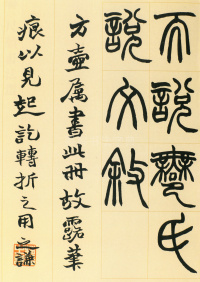 而說鄦氏
說文敘
方壺屬書此冊故露筆
痕以見起訖轉折之用之謙